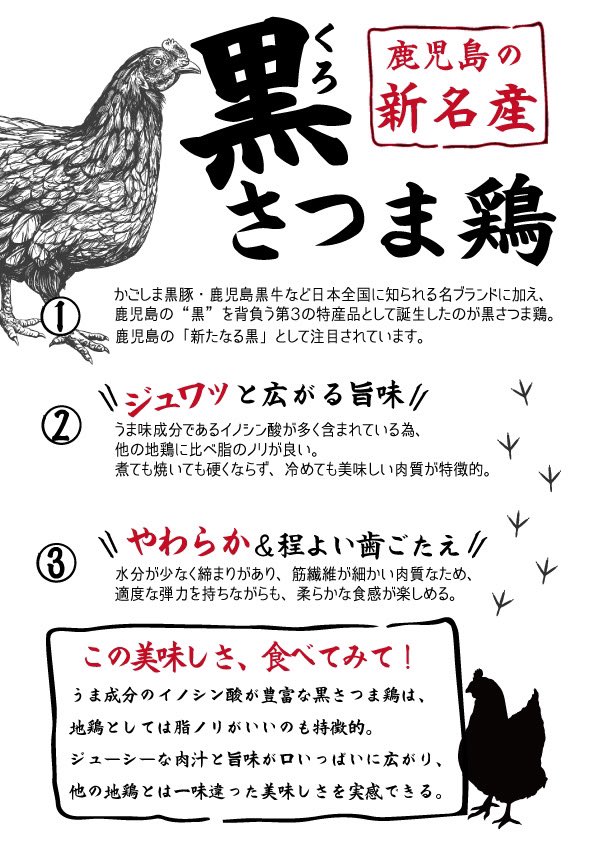 鹿児島の
新名産
黒
くろ
さつま鶏
①
かごしま黒豚・鹿児島黒牛など日本全国に知られる名ブランドに加え、
鹿児島の“黒”を背負う第3の特産品として誕生したのが黒さつま鶏。
鹿児島の「新たなる黒」として注目されています。
②
ジュワッと広がる旨味
うま味成分であるイノシン酸が多く含まれている為、
他の地鶏に比べ脂のノリが良い。
煮ても焼いても硬くならず、冷めても美味しい肉質が特徴的。
③
やわらか&程よい歯ごたえ
水分が少なく締まりがあり、筋繊維が細かい肉質なため、
適度な弾力を持ちながらも、柔らかな食感が楽しめる。
この美味しさ、食べてみて!
うま成分のイノシン酸が豊富な黒さつま鶏は、
地鶏としては脂ノリがいいのも特徴的。
ジューシーな肉汁と旨味が口いっぱいに広がり、
他の地鶏とは一味違った美味しさを実感できる。